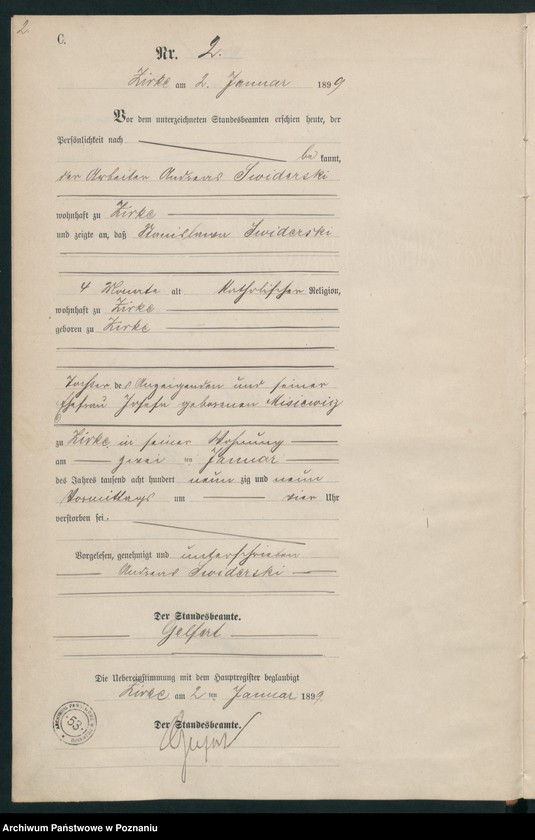 2
C.
Nr. 2.
Zirke am 2. Januar 1899
Vor dem unterzeichneten Standesbeamten erschien heute, der
Persönlichkeit nach
be kannt,
der Arbeiter Andreas Swiderski
wohnhaft zu Zirke
und zeigte an, daß Stanislawa Swiderski
4 Monate alt katholischer Religion,
wohnhaft zu Zirke
geboren zu Zirke
Tochter des Anzeigenden und seiner
Ehefrau Josefa geborenen Misiewicz
zu Zirke in seiner Wohnung
am zwei ten Januar
des Jahres tausend acht hundert neun zig und neun
Vormittags um vier Uhr
verstorben sei.
Vorgelesen, genehmigt und unterschrieben
Andreas Swiderski
Der Standesbeamte.
Gelfort
Die Uebereinstimmung mit dem Hauptregister beglaubigt
Zirke am 2 ten Januar 1899.
Der Standesbeamte.
53
Archiwum Państwowe w Poznaniu